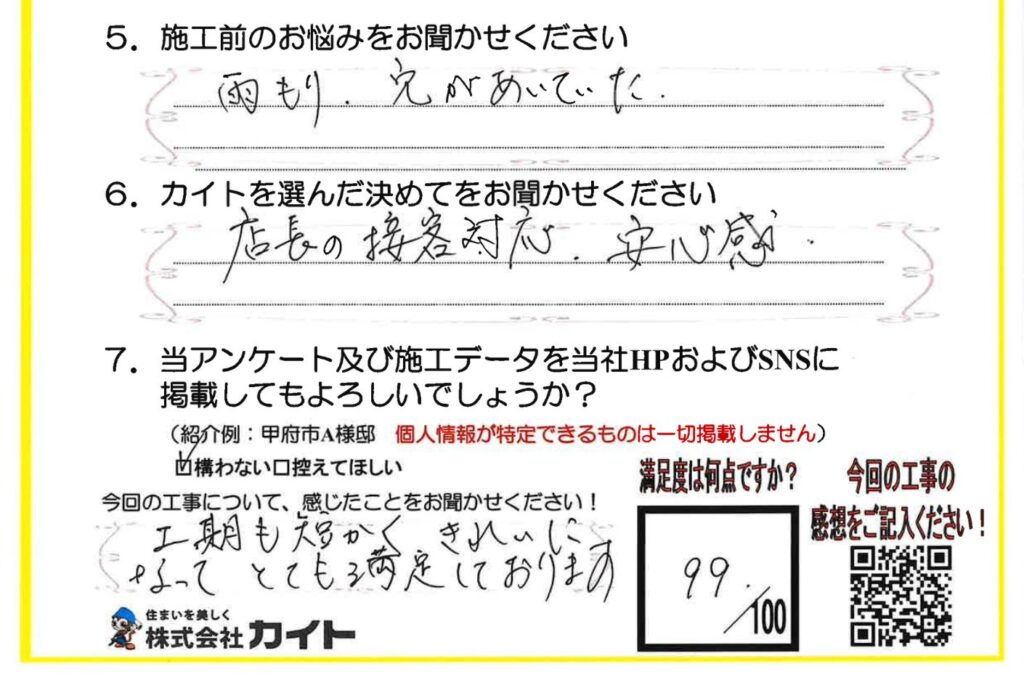 5．施工前のお悩みをお聞かせください
雨もり．穴があいていた．
6．カイトを選んだ決めてをお聞かせください
店長の接客対応．安心感．
7．当アンケート及び施工データを当社HPおよびSNSに
掲載してもよろしいでしょうか？
（紹介例：甲府市A様邸　個人情報が特定できるものは一切掲載しません）
☑構わない口控えてほしい
今回の工事について、感じたことをお聞かせください！
工期も短かく きれいに
なって とても満足しております
満足度は何点ですか？
99．/100
今回の工事の
感想をご記入ください！
住まいを美しく
株式会社カイト